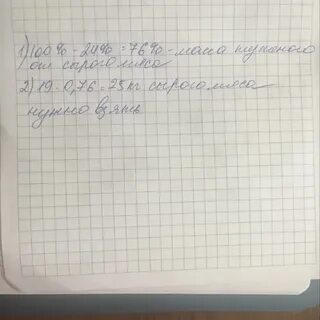 1) 100% - 24% = 76% - масса тушеного
от сырого мяса
2) 19 : 0,76 = 25 кг сырого мяса
нужно взять